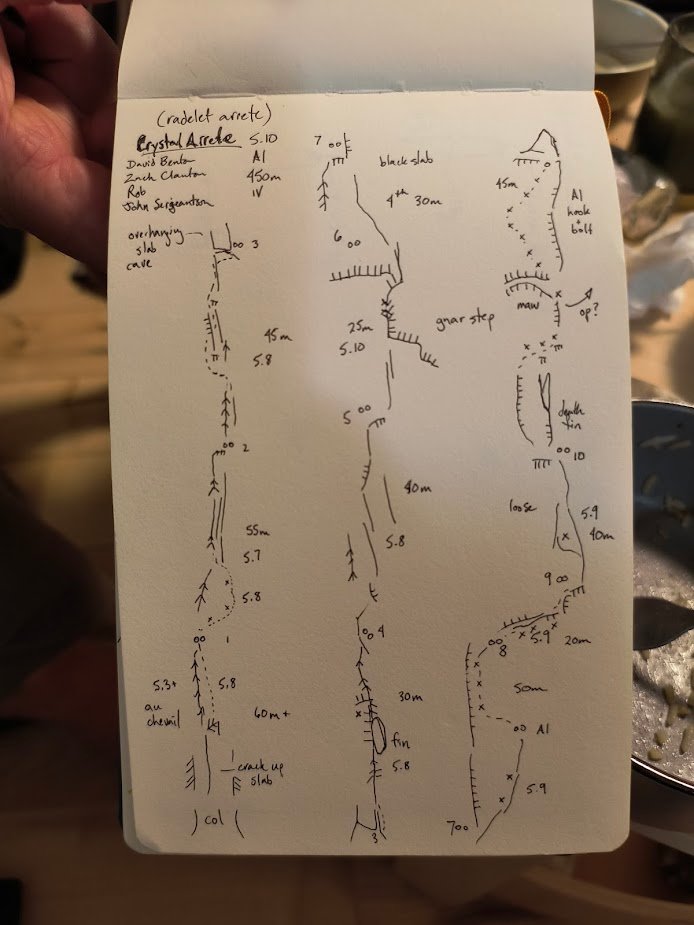 (radelet arrete)
Crystal Arrete 5.10
David Benton A1
Zach Clanton 450m
Rob IV
John Sergeantson
overhanging
slab
cave
3
45m
5.8
2
55m
5.7
5.8
1
5.3+ 5.8
au
cheval
60m+
crack up
slab
) col (
7
black slab
4th 30m
6
25m
5.10
gnar step
5
40m
5.8
4
30m
fin
5.8
3
45m
A1
hook
+
bolt
maw
op?
depth
fin
10
loose
5.9
40m
9
5.9 20m
8
50m
A1
5.9
7